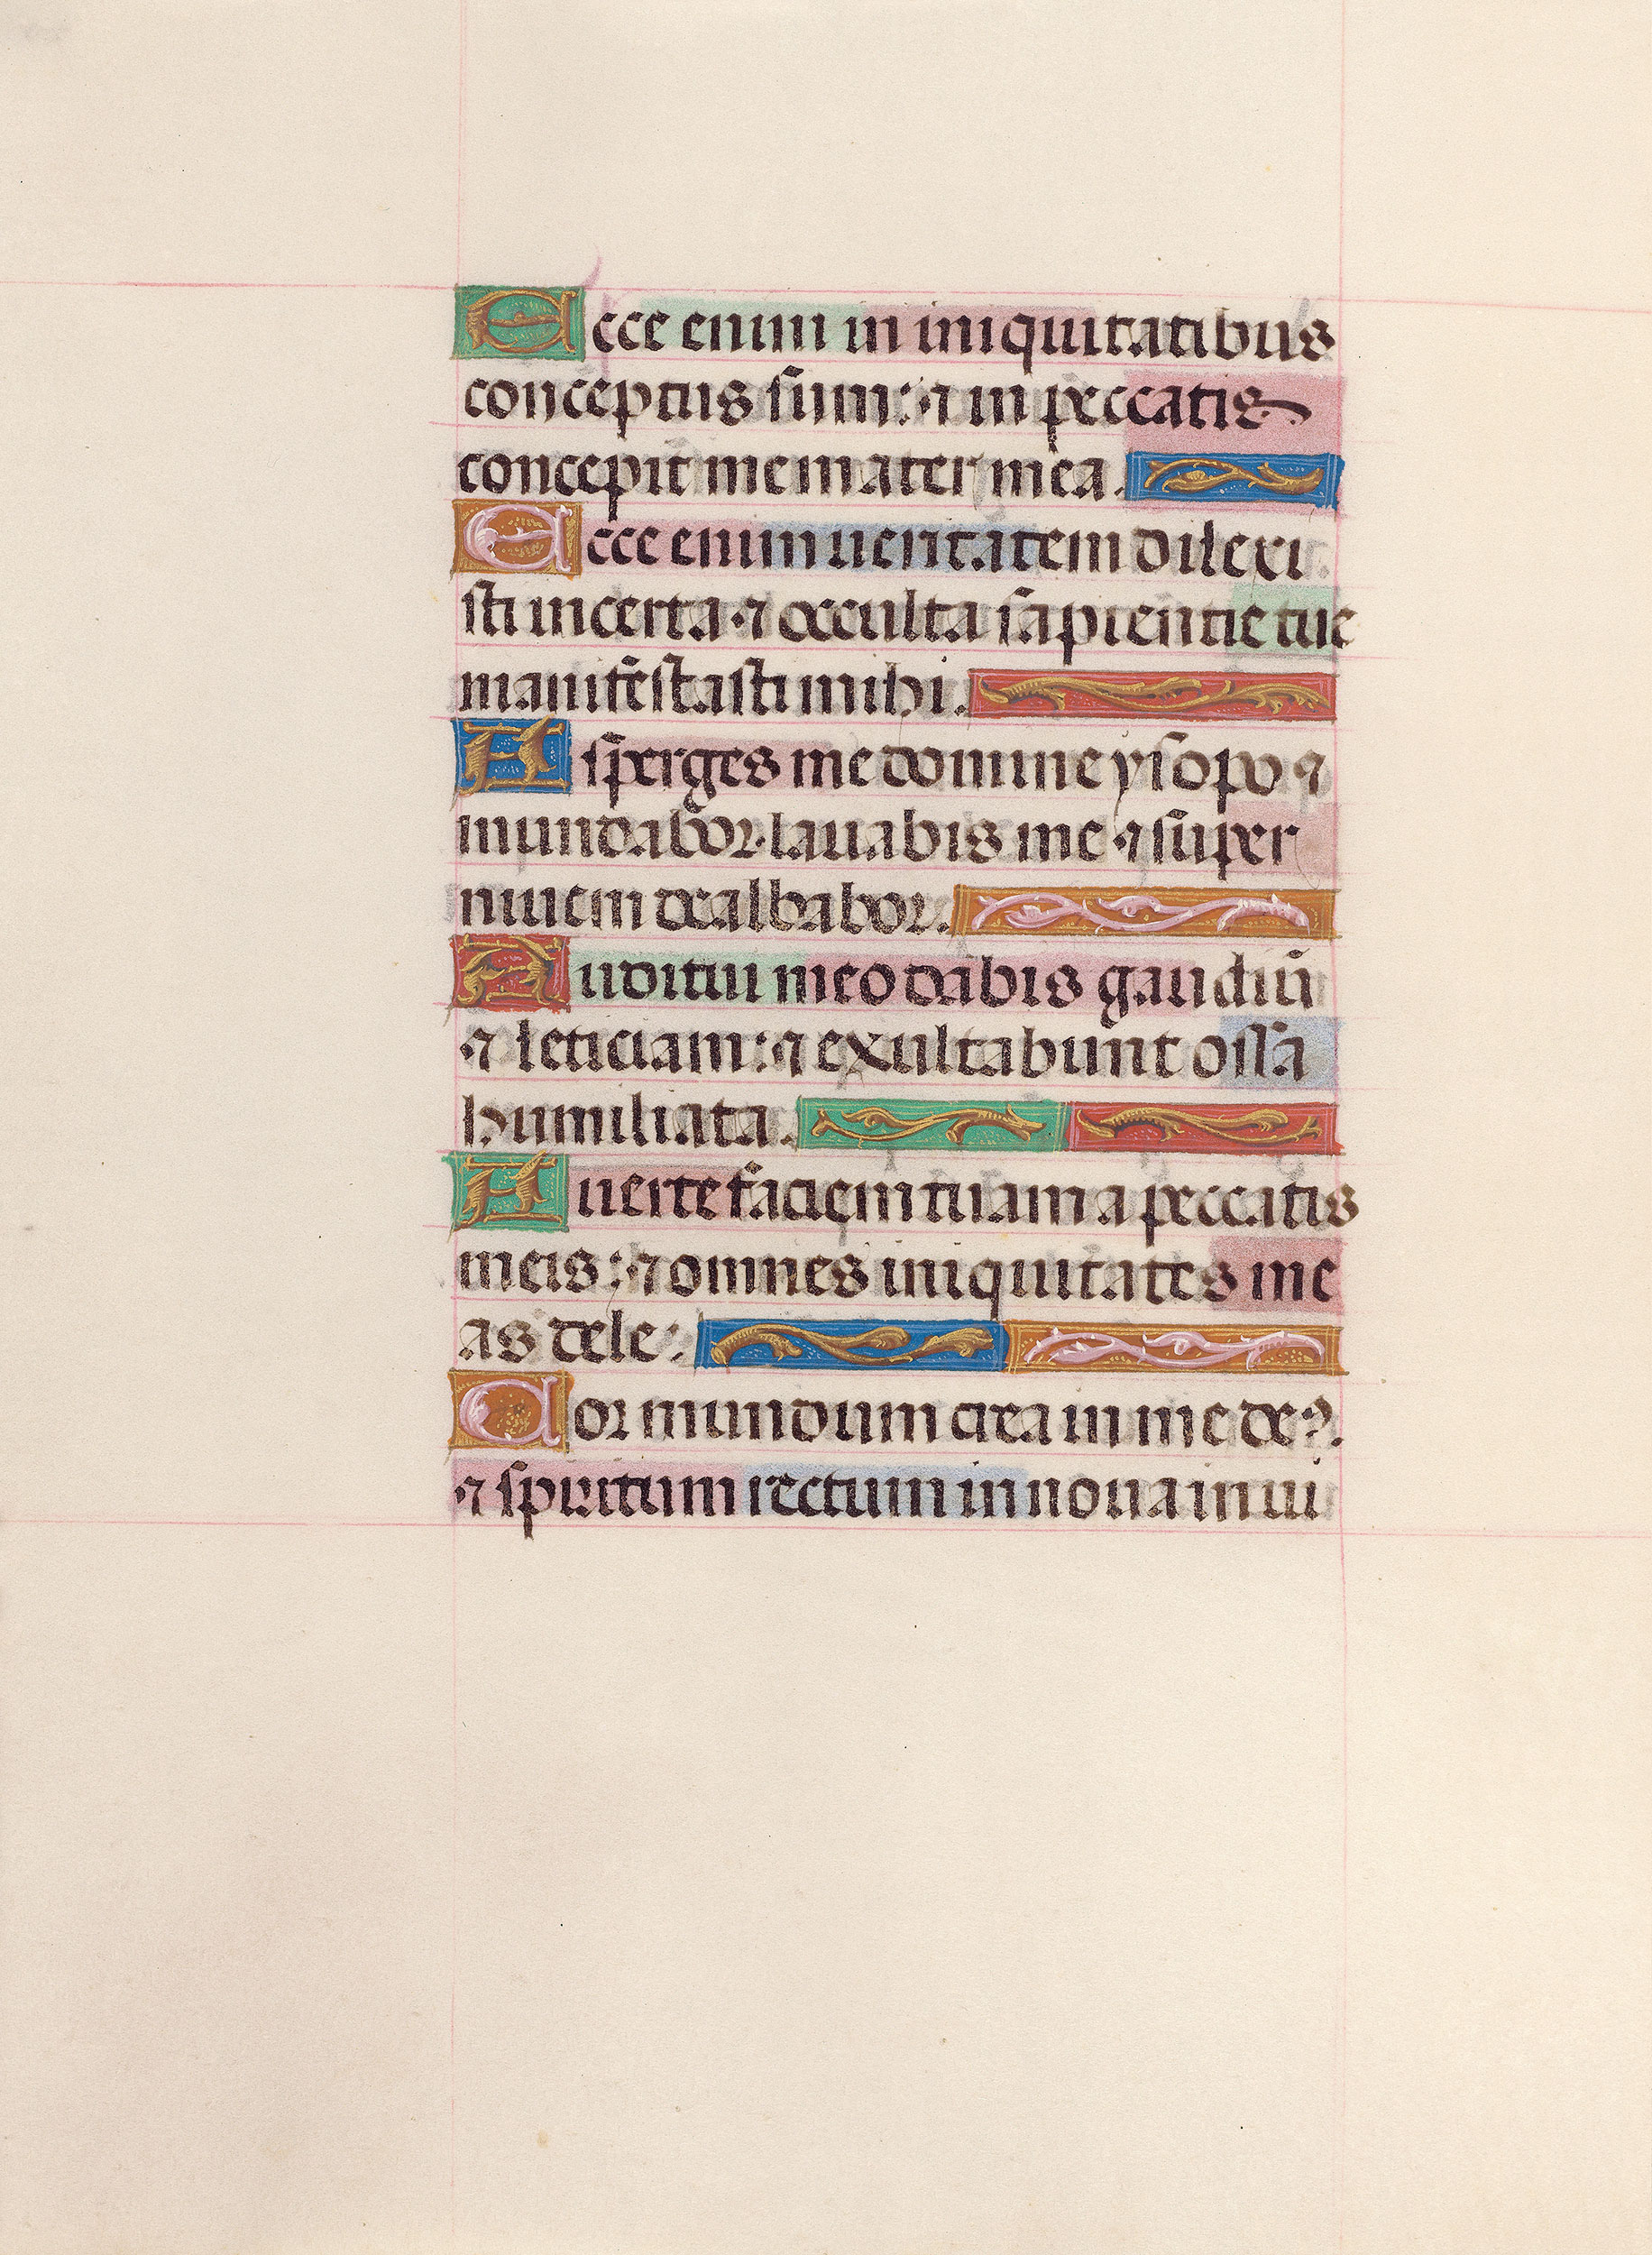 Ecce enim in iniquitatibus
conceptus sum: ⁊ in peccatis
concepit me mater mea.
Ecce enim ueritatem dilexi
sti incerta ⁊ occulta sapientie tue
manifestasti mihi.
Asperges me domine ysopo ⁊
mundabor. lauabis me ⁊ super
niuem dealbabor.
Auditui meo dabis gaudiū
⁊ leticiam: ⁊ exultabunt ossa
humiliata.
Auerte faciem tuam a peccatis
meis: ⁊ omnes iniquitates me
as dele:
Cor mundum crea in me deꝰ.
⁊ spiritum rectum innoua in ui